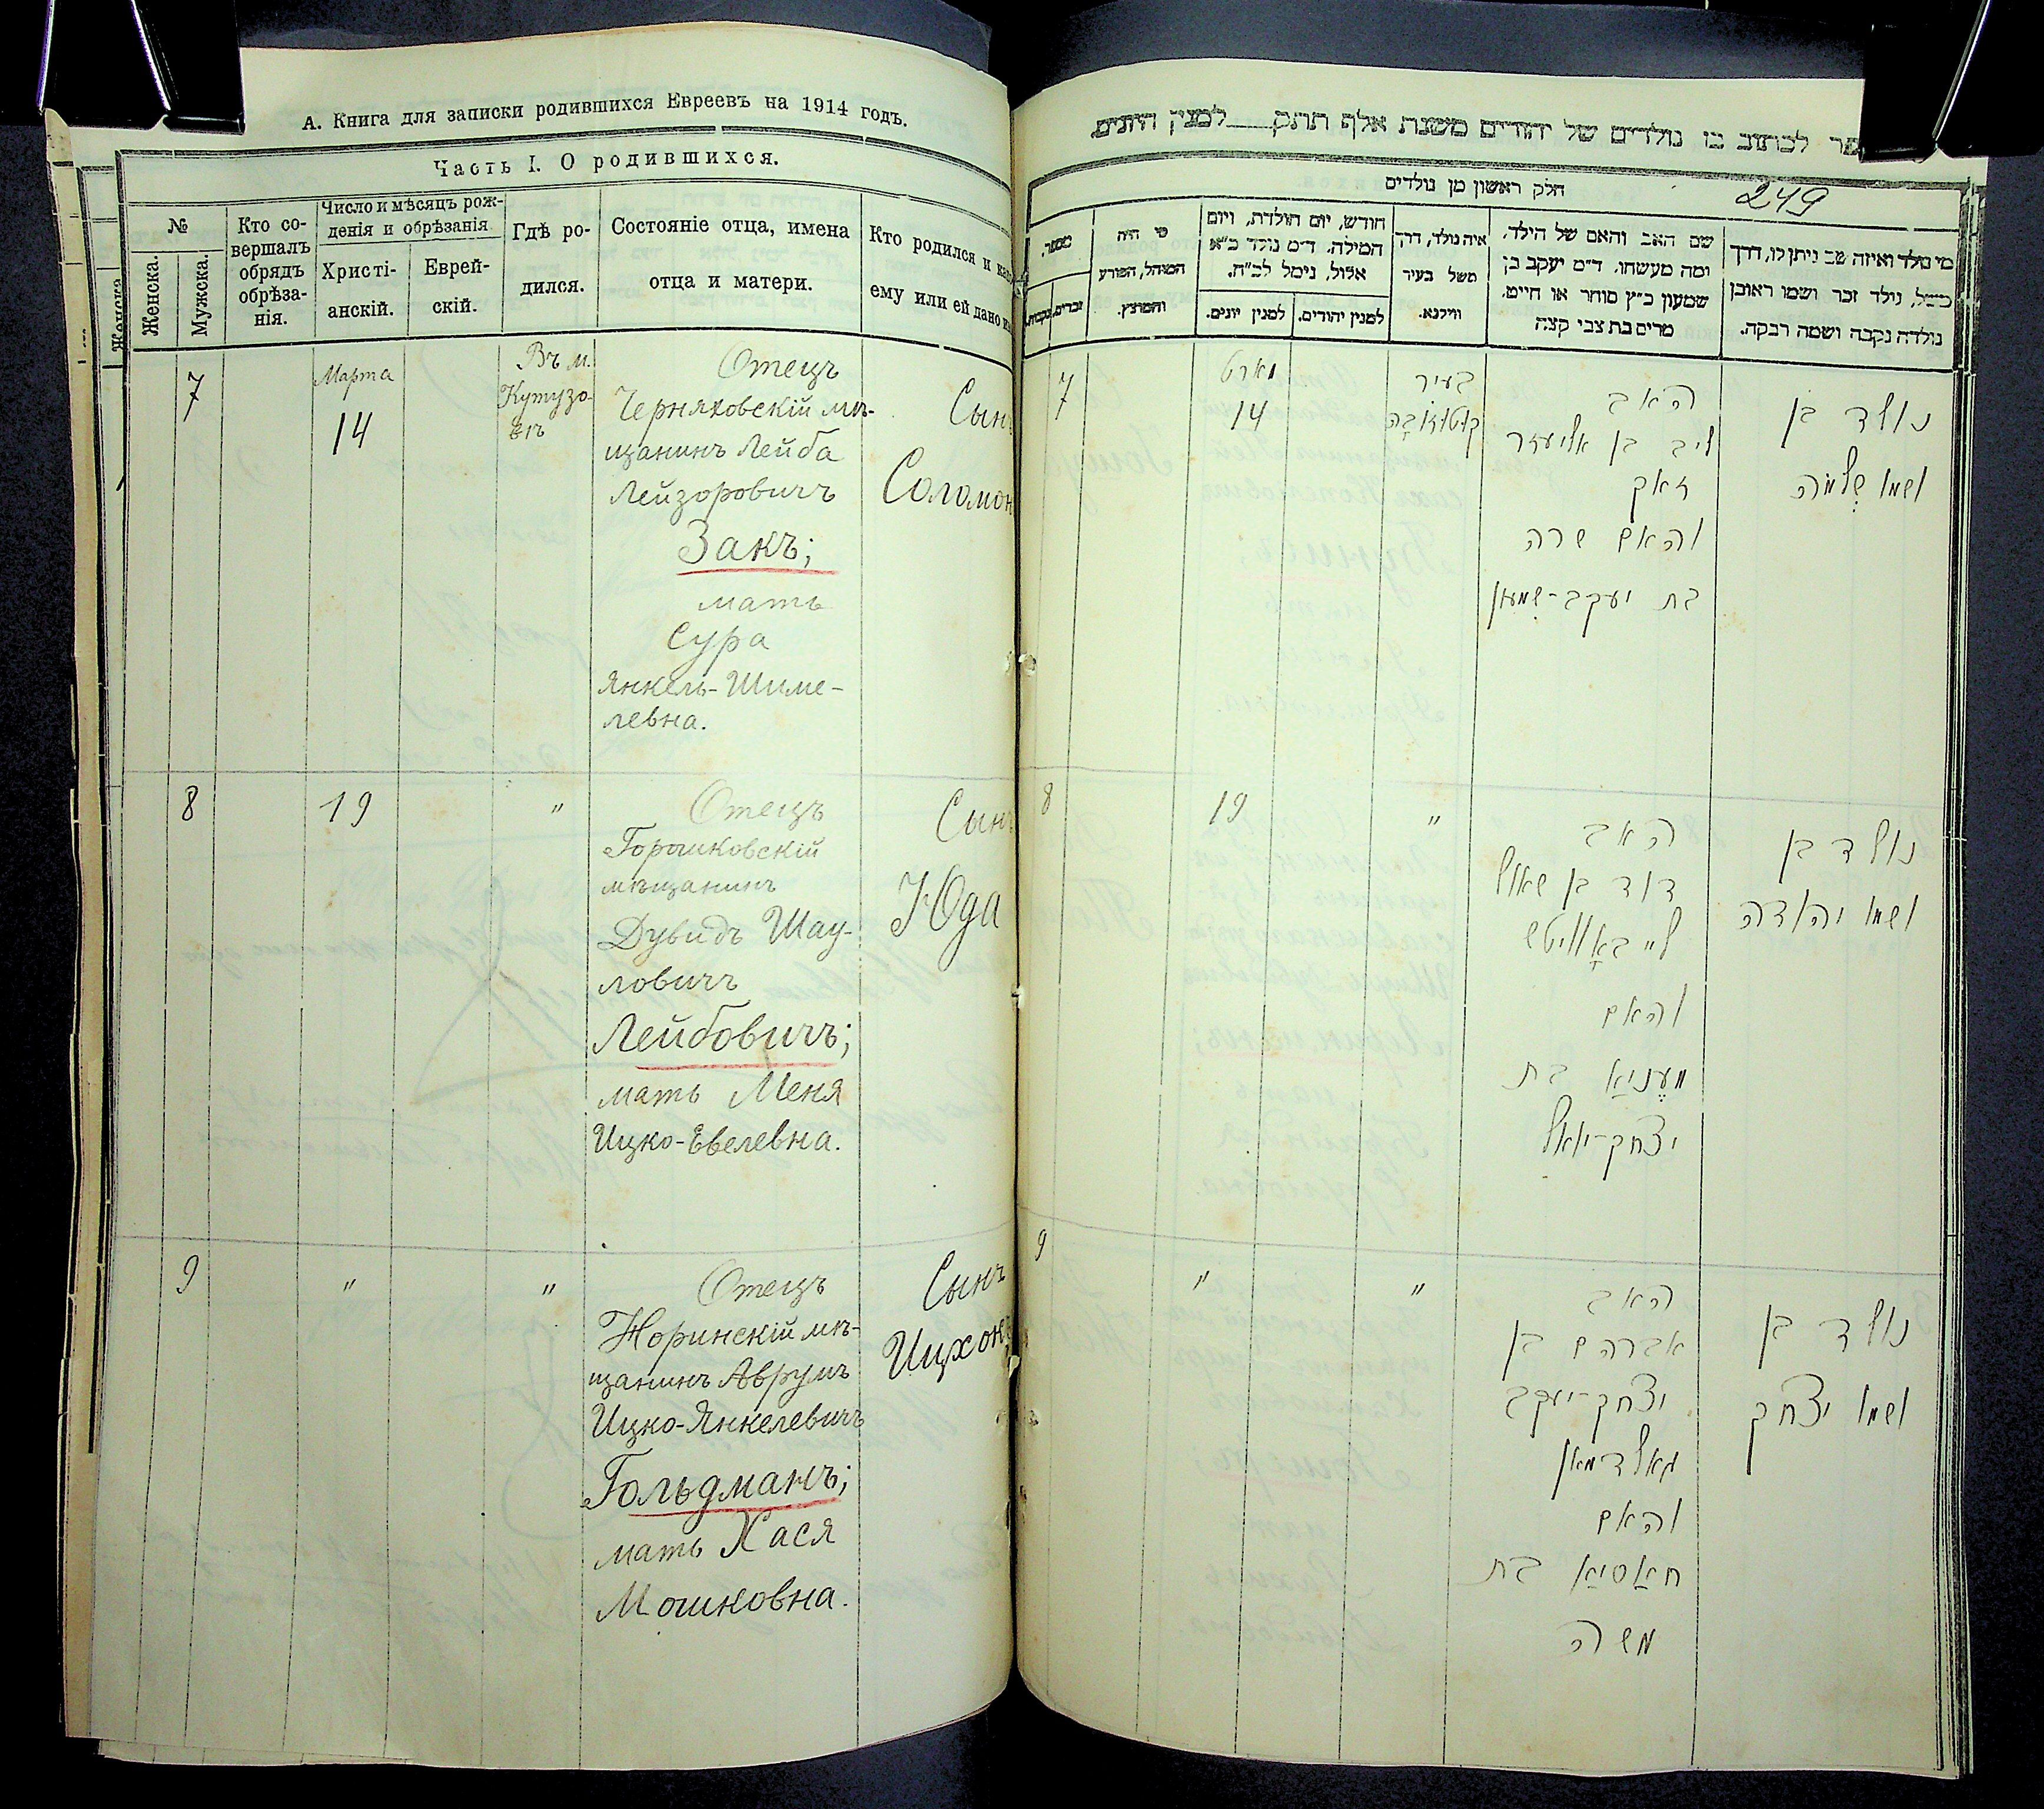 А. Книга для записки родившихся Евреевъ на 1914 годъ.
Часть I. О родившихся.
№
Женска.
Мужска.
Кто со-
вершалъ
обрядъ
обрѣза-
нія.
Число и мѣсяцъ рож-
денія и обрѣзанія
Христі-
анскій.
Еврей-
скій.
Гдѣ ро-
дился.
Состояніе отца, имена
отца и матери.
Кто родился и
ему или ей дано
7
Марта
14
Въ м.
Кутузо-
вѣ
Отецъ
Черняховскій мѣ-
щанинъ Лейба
Лейзоровичъ
Закъ;
мать
Сура
Янкель-Шиме-
левна.
Сынъ
Соломон
8
19
"
Отецъ
Горошковскій
мѣщанинъ
Дувидъ Шау-
ловичъ
Лейбовичъ;
мать Меня
Ицко-Евелевна.
Сынъ
Юда
9
"
"
Отецъ
Норинскій мѣ-
щанинъ Аврумъ
Ицко-Янкелевичъ
Гольдманъ;
мать Хася
Мошковна.
Сынъ
Ицхокъ
פר לכתוב בו נולדים של יהודים משנת אלף תתק___למנין היונים
חלק ראשון מן נולדים
249
מספר.
זכרים.
נקבות.
מי היה
המוהל, הפורע
והמוצץ.
חודש, יום הולדת, ויום
המילה. ד״מ נולד כ״א
אלול, נימול לכ״ח.
למנין יונים.
למנין יהודים.
איה נולד, דרך
משל בעיר
ווילנא.
שם האב והאם של הילד,
ומה מעשהו. ד״מ יעקב בן
שמעון כ״ץ סוחר או חייט,
מרים בת צבי קצה
מי נולד ואיזה שם ניתן לו, דרך
משל, נולד זכר ושמו ראובן
נולדה נקבה ושמה רבקה.
7
מארט
14
בעיר
קוטוזובה
האב
ליב בן אליעזר
זאק
והאם שרה
בת יעקב-שמעון
נולד בן
ושמו שלמה
8
19
"
האב
דוד בן שאול
לייבאָוויטש
והאם
מעניאַ בת
יצחק-יואל
נולד בן
ושמו יהודה
9
"
"
האב
אברהם בן
יצחק-יעקב
גאלדמאן
והאם
חאַסיאַ בת
משה
נולד בן
ושמו יצחק